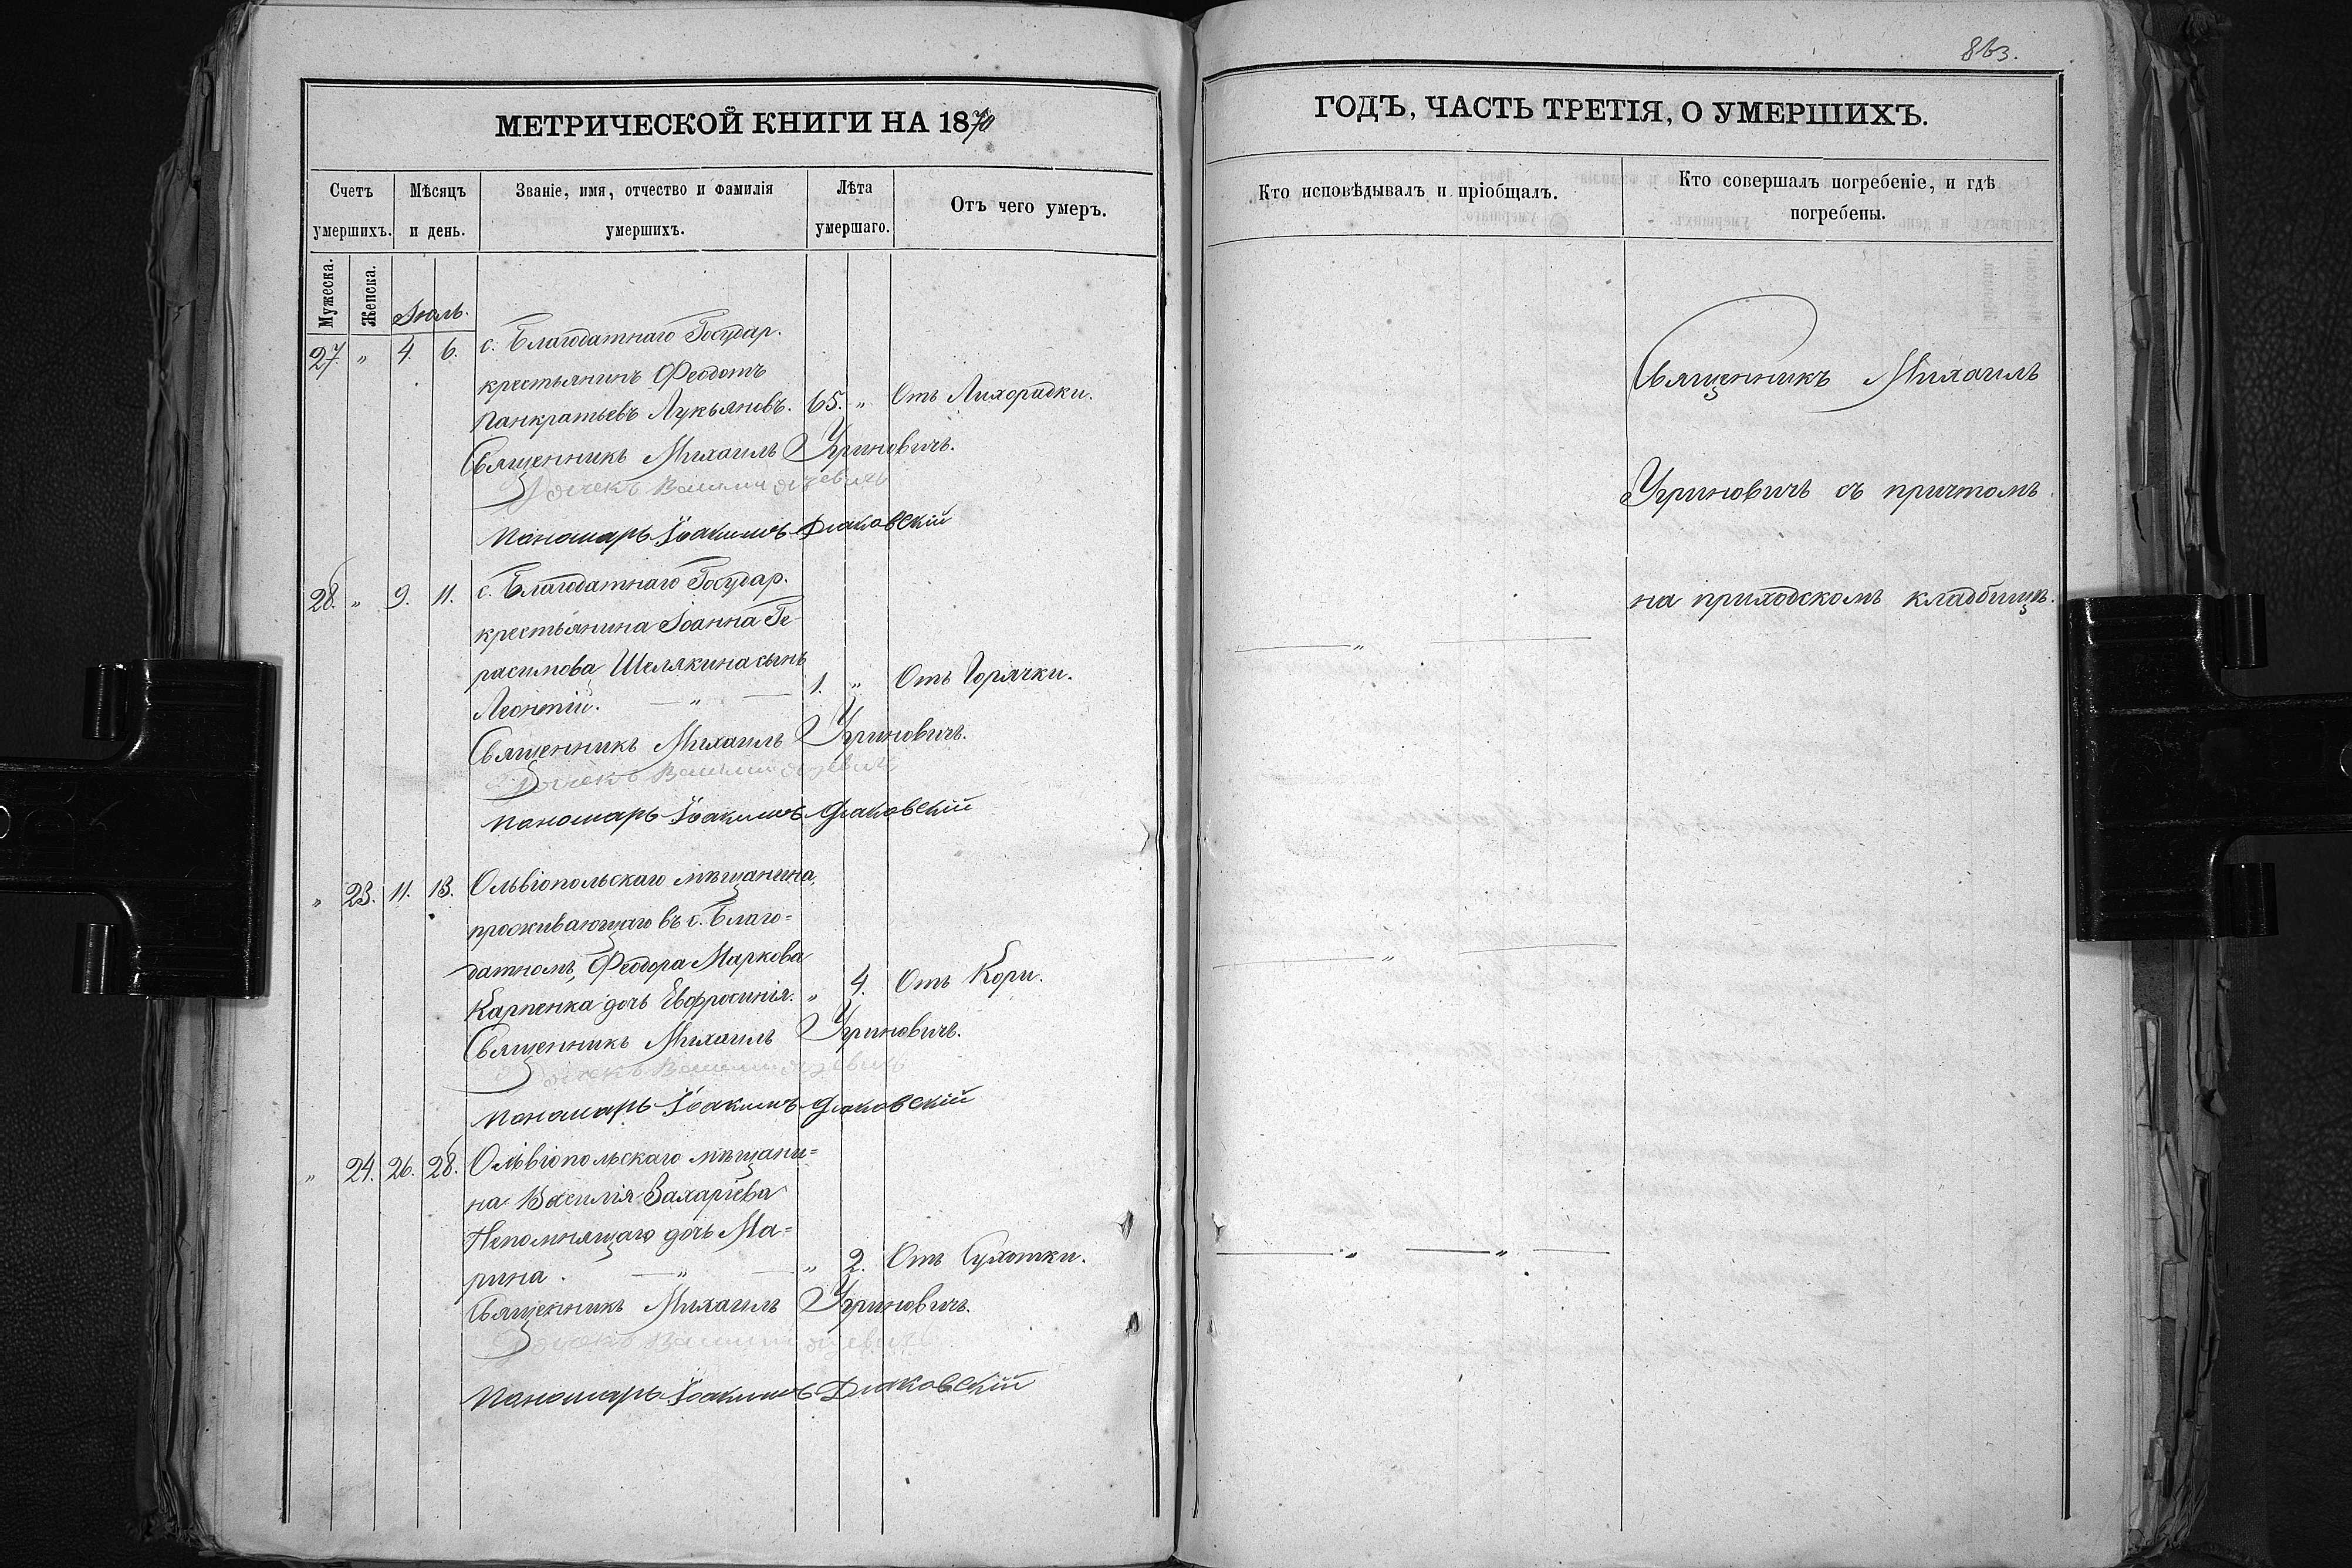 863.
МЕТРИЧЕСКОЙ КНИГИ НА 1870
ГОДЪ, ЧАСТЬ ТРЕТІЯ, О УМЕРШИХЪ.
Счетъ умершихъ.
Мѣсяцъ и день.
Званіе, имя, отчество и фамилія умершихъ.
Лѣта умершаго.
Отъ чего умеръ.
Кто исповѣдывалъ и пріобщалъ.
Кто совершалъ погребеніе, и гдѣ погребены.
Мужеска.
Женска.
Іюль.
27. " 4. 6. с. Благодатнаго Государ.
крестьянинъ Феодотъ
Панкратьевъ Лукьяновъ. 65. " Отъ Лихорадки.
Священникъ Михаилъ Угриновичъ.
Пономарь Іоакимъ Дьаковскій
28. " 9. 11. с. Благодатнаго Государ.
крестьянина Іоанна Ге-
расимова Шелякина сынъ
Леонтій. " 1. " Отъ Горячки.
Священникъ Михаилъ Угриновичъ.
Пономарь Іоакимъ Дьаковскій
" 23. 11. 13. Ольвіопольскаго мѣщанина,
проживающаго въ с. Благо=
датномъ, Феодора Маркова
Карпенка дочь Евфросинія. " 4. Отъ Кори.
Священникъ Михаилъ Угриновичъ.
Пономарь Іоакимъ Дьаковскій
" 24. 26. 28. Ольвіопольскаго мѣщани=
на Василія Захаріева
Непомнящаго дочь Ма=
рина. " " 2. Отъ Сухотки.
Священникъ Михаилъ Угриновичъ.
Пономарь Іоакимъ Дьаковскій
Священникъ Михаилъ
Угриновичъ съ причтомъ
на приходскомъ кладбищѣ.